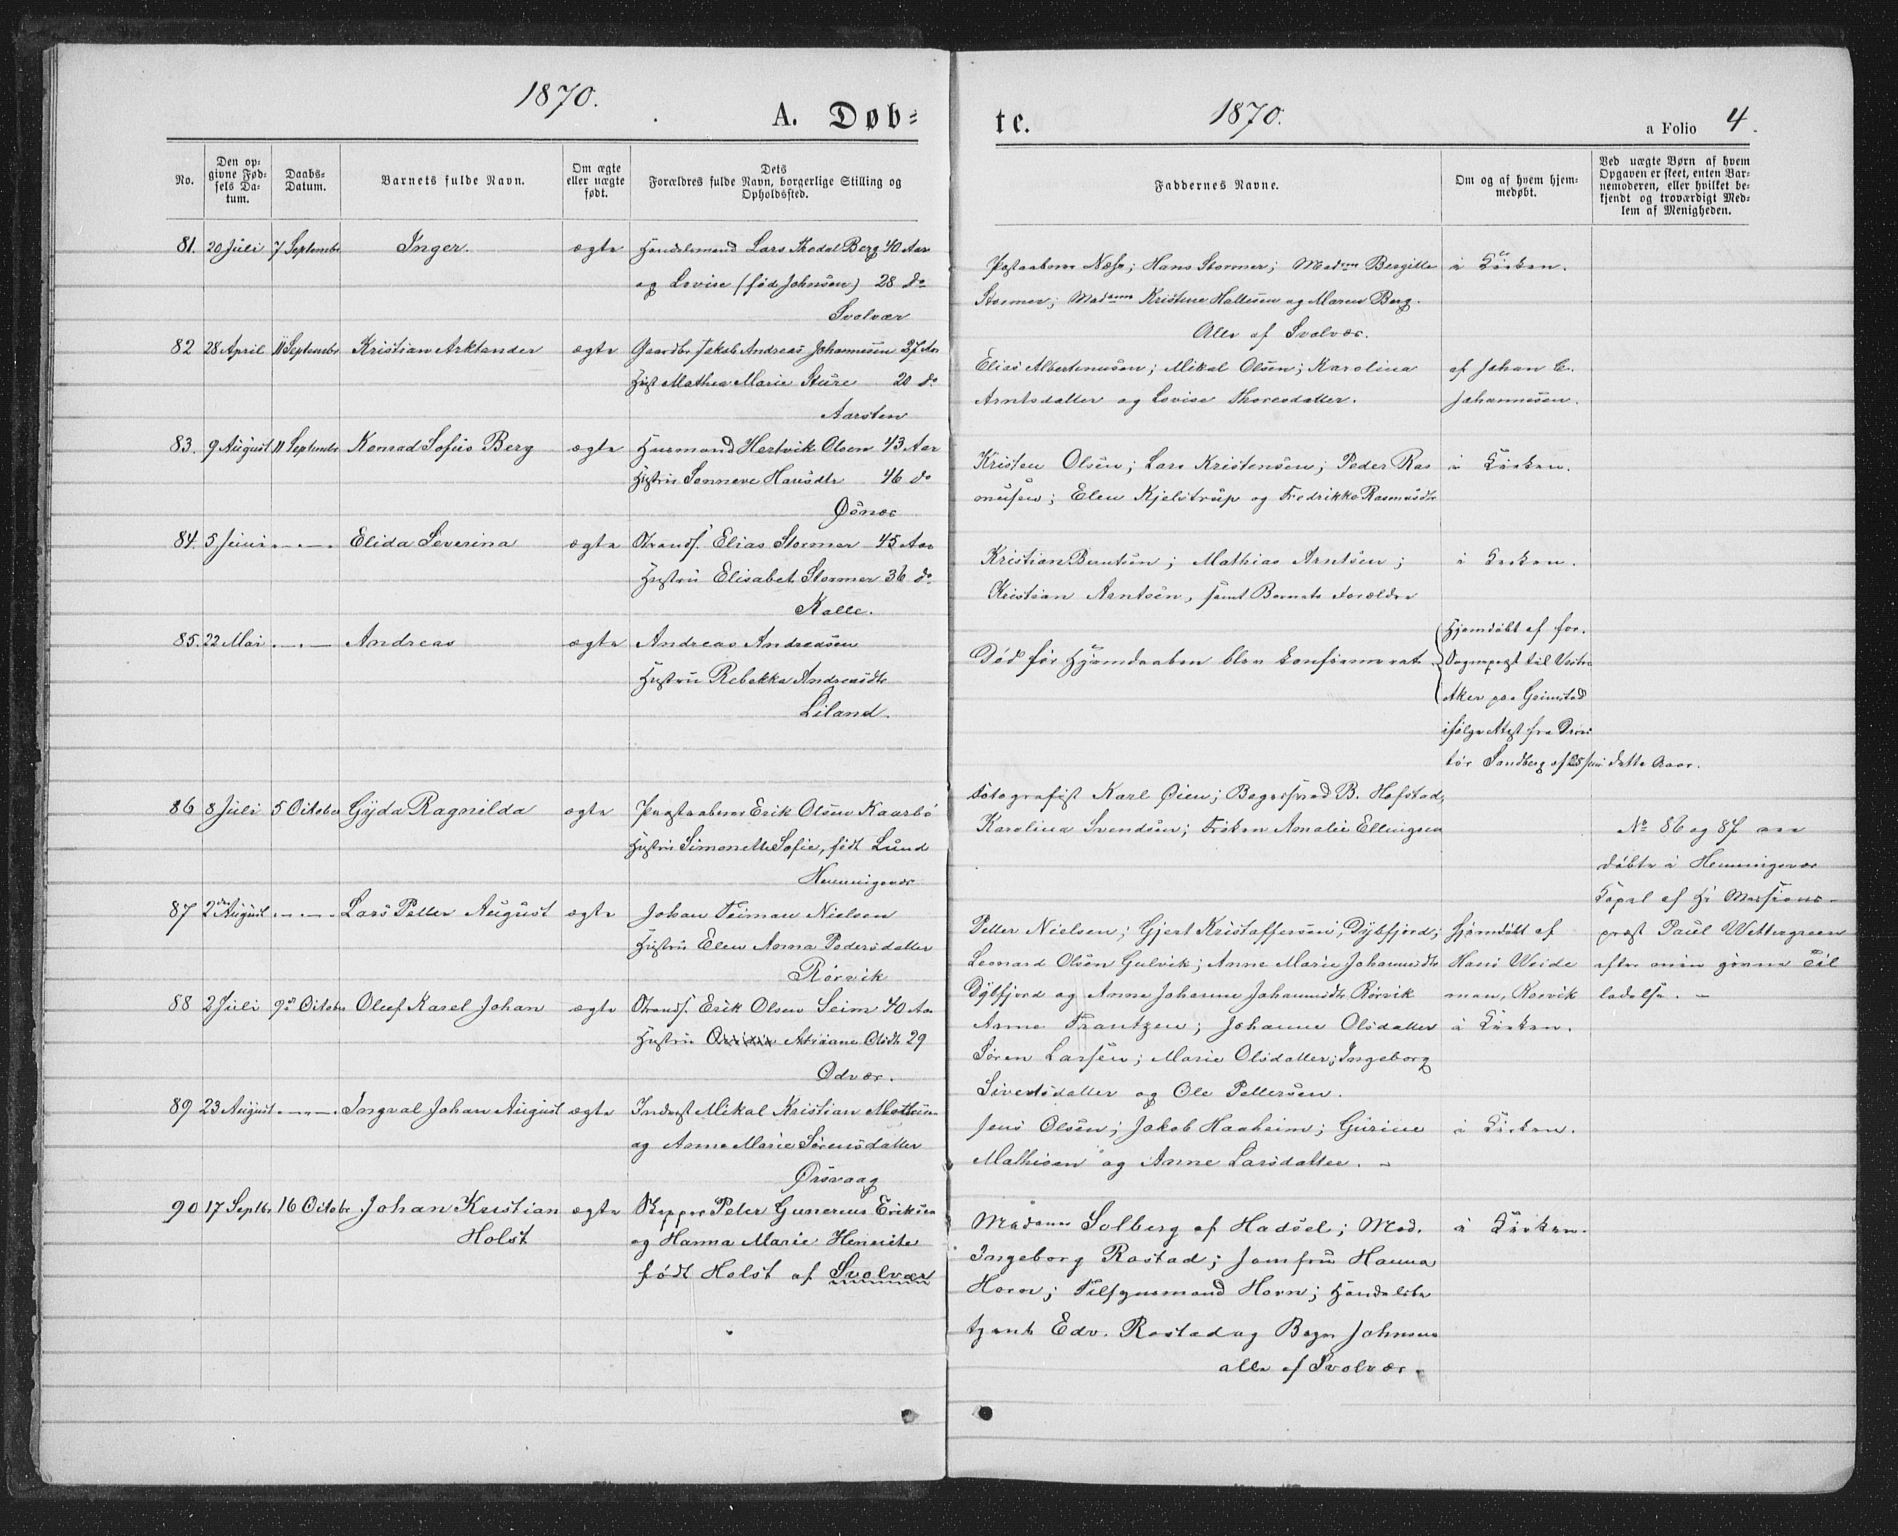 1870.
A. Døb-
No.
Den op-
givne Fød-
sels Da-
tum.
Daabs-
Datum.
Barnets fulde Navn.
Om ægte
eller uægte
født.
Dets
Forældres fulde Navn, borgerlige Stilling og
Opholdssted.
81. 20 Juli 7 Septembr Inger. ægte Handelsmand Lars Thodal Berg 40 Aar
og Lovise (fød Johnsen) 28 do
Svolvær
82 28 April 11 Septembr Kristian Arktander ægte Gaardbr Jakob Andreas Johannesen 37 Aar
Hust Mathea Marie Sture 20 do
Aarsten
83. 9 August 11 Septembr Konrad Sofus Berg ægte Husmand Hertvik Olsen 43 Aar
Hustru Sonneve Hansdtr 46 do
Øsnæs
84. 5 Juni -"- Elida Severina ægte Strands. Elias Stormer 45 Aar
Hustru Elisabet Stormer 36 do
Kalle.
85. 22 Mai -"- Andreas ægte Andreas Andreasen
Hustru Rebekka Andreasdtr
Liland.
86 8 Juli 5 October Gyda Ragnilda ægte Postaabner Erik Olsen Kaarbø
Hustru Simonette Sofie, født Lund
Henningsvær
87 2 August -"- Lars Petter August ægte Johan Teiman Nielsen
Hustru Elen Anna Pedersdatter
Rørvik
88 2 Juli 9 October Oluf Karel Johan ægte Strands. Erik Olsen Seim 40 Aar
Hustru Adriane Olsdtr 29
Odvær.
89 23 August -"- Ingval Johan August ægte Inderst Mikal Kristian Mathisen
og Anne Marie Sørensdatter
Ørsvaag
90 17 Septbr 16 Octobr Johan Kristian ægte Skipper Peter Gunerius Eriksen
Holst og Hanna Marie Henrite
født Holst af Svolvær
te.
1870.
a Folio 4.
Faddernes Navne.
Om og af hvem hjem-
medøbt.
Ved uægte Børn af hvem
Opgaven er skeet, enten Bar-
nemoderen, eller hvilket be-
kjendt og troværdigt Med-
lem af Menigheden.
Postaabner Næss; Hans Stormer; Madame Bergitte i Kirken.
Stormer; Madame Kristine Hallesen og Maren Berg.
Alle af Svolvær.
Elias Albertinusen; Mikal Olsen; Karolina af Johan C.
Arntsdatter og Lovise Thoresdatter. Johannesen.
Kristen Olsen; Lars Kristensen; Peder Ras i Kirken.
musen; Elen Kjelstrup og Fredrikke Rasmusdtr
Kristian Berntsen; Mathias Arntsen; i Kirken.
Kristian Arntsen, samt Barnets Forældre
Hjemdøbt af for.
Død før Hjemdaaben blev konfirmeret Sogneprest til Vestre
Aker pra Grimstad
ifølge Attest fra
Sandberg af 25 Juni dette Aar.
Fotografist Karl Øien; B. Hofstad,
Karolina Svendsen; Frøken Amalie Ellingsen No 86 og 87 ere
døbte i Henningsvær
Kapel af Hr Missions-
Petter Nielsen; Gjert Kristoffersen, Dybfjord; Hjemdøbt af præst Paul Wettergreen
Leonard Olsen Gulvik; Anne Marie Johannesdtr Hans Weide efter min givne Til
Dybfjord og Anne Johanne Johannesdtr Rørvik man, Rørvik ladelse. -
Anne Frantzen; Johanne Olsdatter i Kirken.
Søren Larsen; Marie Olsdatter; Ingeborg
Sivertsdatter og Ole Pettersen.
Jens Olsen; Jakob Haaheim; Gurine i Kirken.
Mathisen og Anne Larsdatter. -
Madame Solberg af Hadsel; Mad. i Kirken.
Ingeborg Rostad; Jomfru Hanna
Horn; Tilsynsmand Horn; Handelsbe
tjent Edv. Rostad og Bager Johnsen
alle af Svolvær.